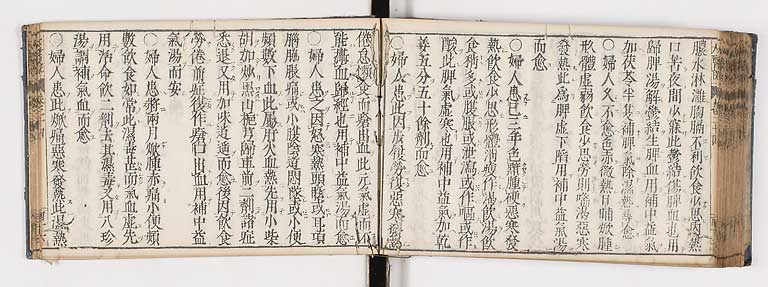 膿水淋漓胸膈不利飲食少思內熱
口苦夜間少寐此鬱結傷脾血也用
歸脾湯解鬱結生脾血用補中益氣
加茯苓半夏補脾氣除濕熱尋愈
〇婦人久不愈色赤微熱日晡焮腫
形體虛弱飲食少思勞則喘渴惡寒
發熱此為脾虛下陷用補中益氣湯
而愈
〇婦人患已三年色黯腫硬惡寒發
熱飲食少思形體消瘦作渴飲湯飲
食稍多或腹脹或泄瀉或作嘔或作
酸此脾氣虛寒也用補中益氣加乾
姜五分五十餘劑而愈
〇婦人患此因勞役勞復惡寒發熱
倦怠懶食而瘡出血此元氣虛而不
能攝血歸經也用補中益氣湯而愈
〇婦人患之因怒寒熱頭眩或耳項
胸脇脹痛或小腹陰道悶墜或小便
頻數下血此屬肝火血熱先用小柴
胡加炒黑山梔芎歸車前二劑諸症
悉退又用加味逍遙而愈後因飲食
勞倦前症復作瘡口出血用補中益
氣湯而安
〇婦人患將兩月焮腫赤痛小便頻
數飲食如常此濕毒甚而氣血虛先
用活命飲二劑去其濕毒又用八珍
湯調補氣血而愈
〇婦人患此焮痛惡寒發熱此濕熱